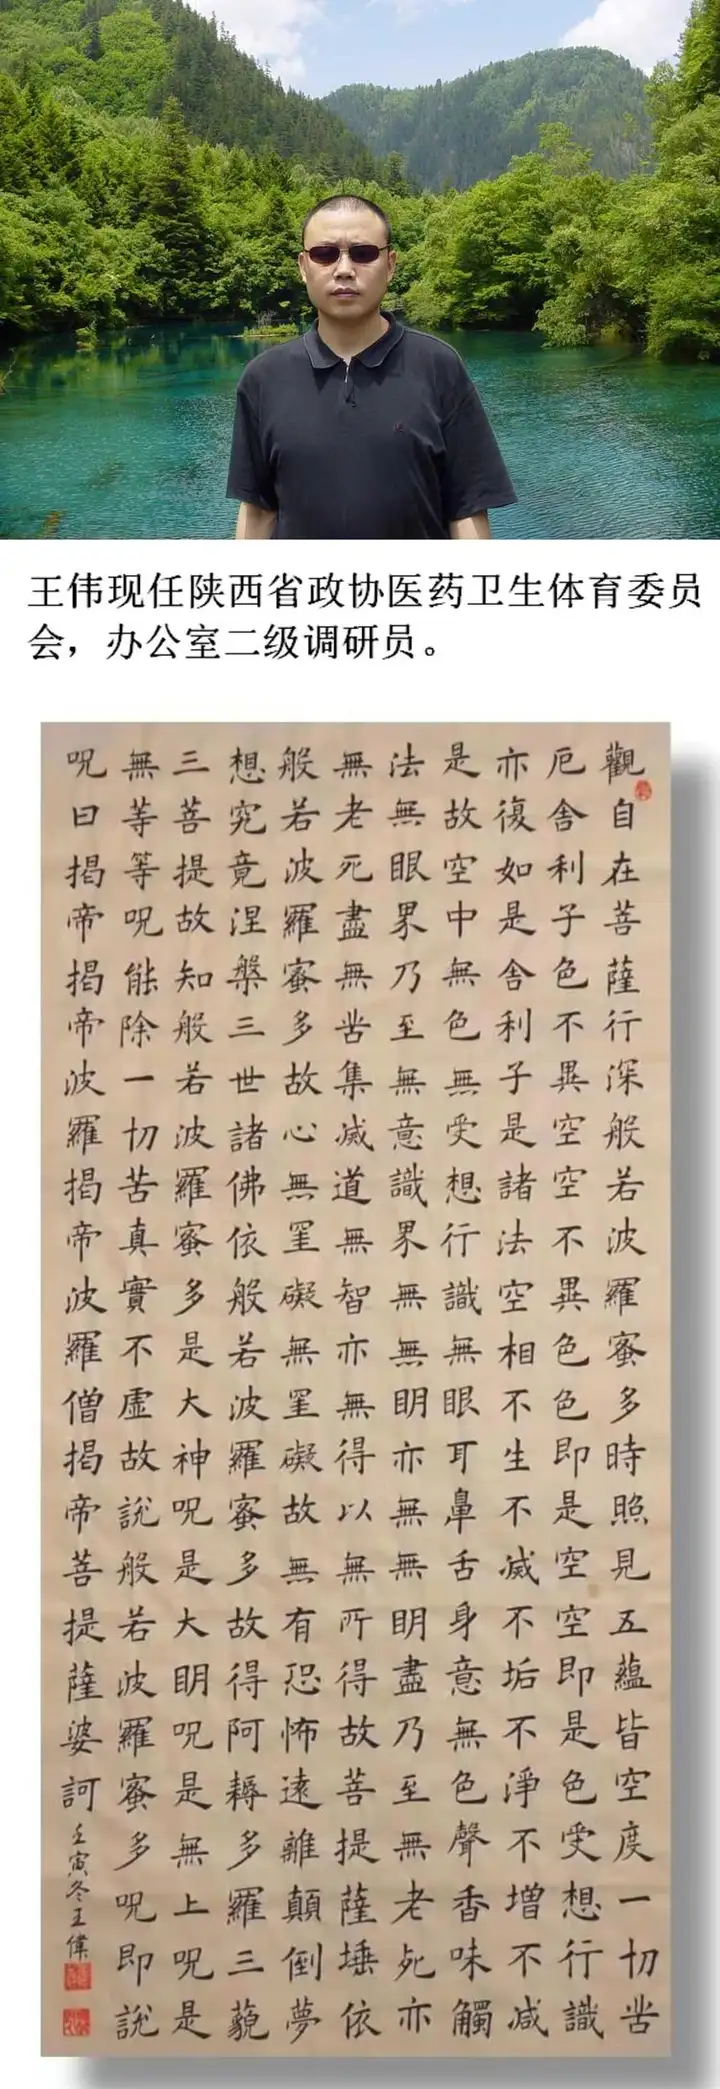 王伟现任陕西省政协医药卫生体育委员
会，办公室二级调研员。
觀自在菩薩行深般若波羅蜜多時照見五蘊皆空度一切苦
厄舍利子色不異空空不異色色即是空空即是色受想行識
亦復如是舍利子是諸法空相不生不滅不垢不淨不增不減
是故空中無色無受想行識無眼耳鼻舌身意無色聲香味觸
法無眼界乃至無意識界無無明亦無無明盡乃至無老死亦
無老死盡無苦集滅道無智亦無得以無所得故菩提薩埵依
般若波羅蜜多故心無罣礙無罣礙故無有恐怖遠離顛倒夢
想究竟涅槃三世諸佛依般若波羅蜜多故得阿耨多羅三藐
三菩提故知般若波羅蜜多是大神呪是大明呪是無上呪是
無等等呪能除一切苦真實不虛故說般若波羅蜜多呪即說
呪曰揭帝揭帝波羅揭帝波羅僧揭帝菩提薩婆訶 壬寅冬王偉